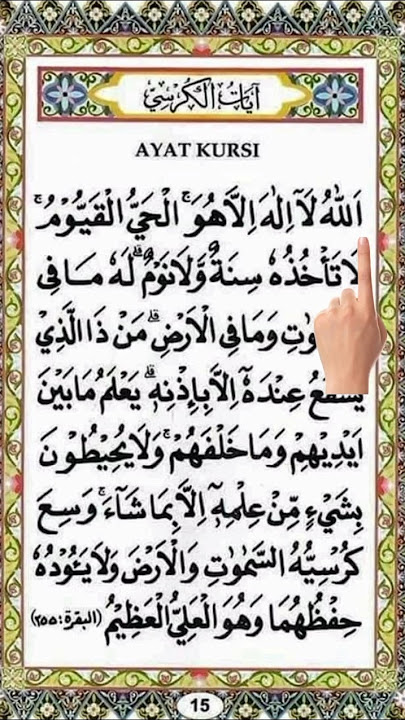 آيات الكرسي
AYAT KURSI
اَللّٰهُ لَآ اِلٰهَ اِلَّا هُوَۚ اَلْحَيُّ الْقَيُّوْمُ ەۚ
لَا تَأْخُذُهٗ سِنَةٌ وَّلَا نَوْمٌۗ لَهٗ مَا فِى
وٰتِ وَمَا فِى الْاَرْضِۗ مَنْ ذَا الَّذِيْ
يَشْفَعُ عِنْدَهٗٓ اِلَّا بِاِذْنِهٖۗ يَعْلَمُ مَا بَيْنَ
اَيْدِيْهِمْ وَمَا خَلْفَهُمْۚ وَلَا يُحِيْطُوْنَ
بِشَيْءٍ مِّنْ عِلْمِهٖٓ اِلَّا بِمَا شَآءَۚ وَسِعَ
كُرْسِيُّهُ السَّمٰوٰتِ وَالْاَرْضَ وَلَا يَـُٔوْدُهٗ
حِفْظُهُمَا وَهُوَ الْعَلِيُّ الْعَظِيْمُ (البقرة: ٢٥٥)
15